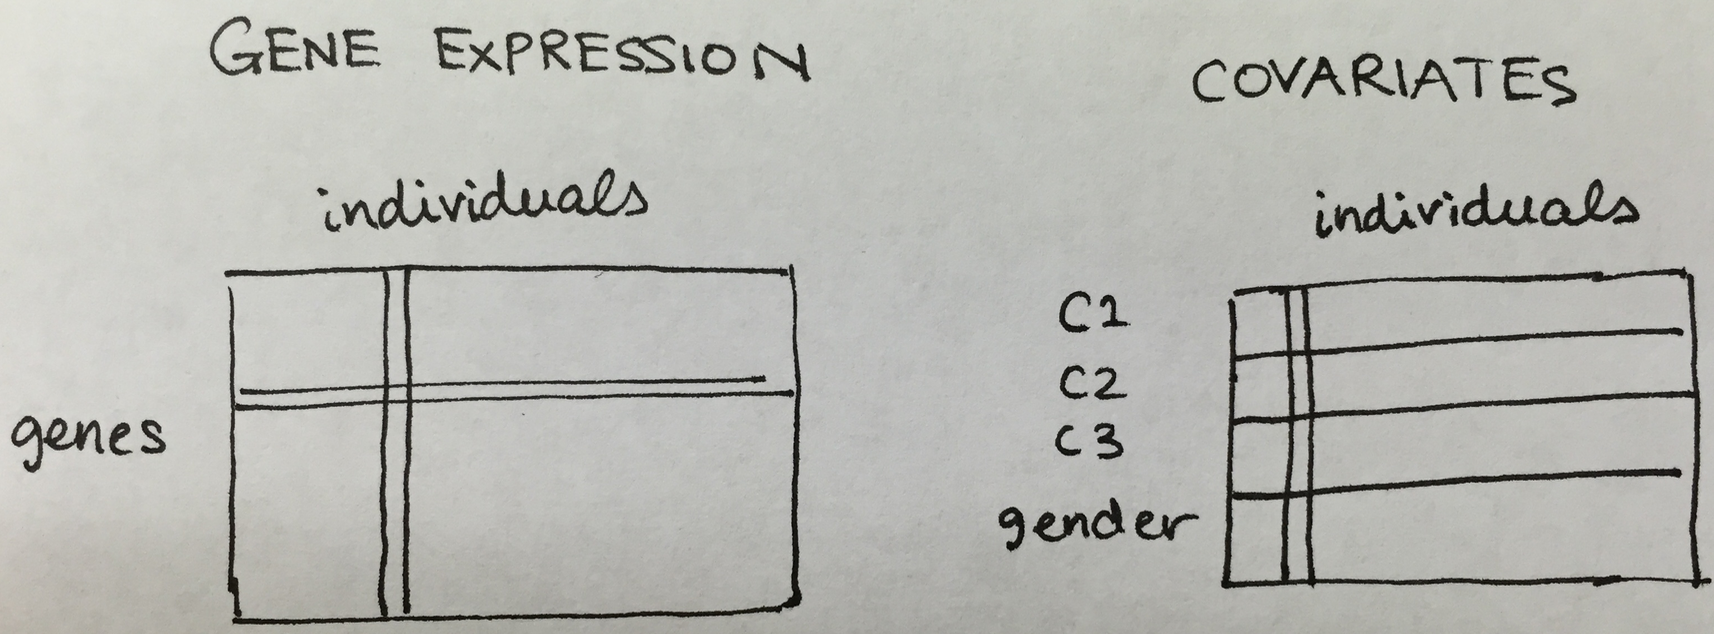 GENE EXPRESSION
individuals
genes
COVARIATES
individuals
C1
C2
C3
gender